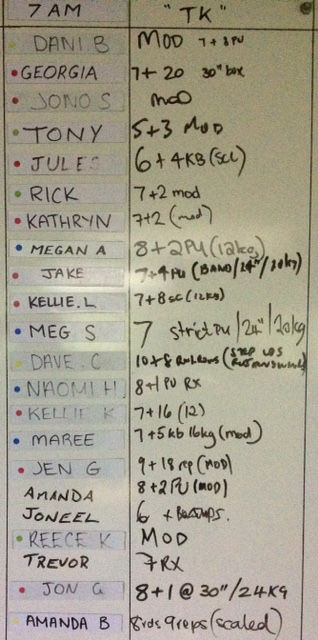 7 AM "TK"
DANI.B MOD 7+8PU
GEORGIA 7+20 30" box
JONO S MOD
TONY 5+3 MOD
JULES 6+4KB (SCL)
RICK 7+2 mod
KATHRYN 7+2 (mod)
MEGAN A 8+2PU (12kg)
JAKE 7+4PU (BAND/24"/20kg)
KELLIE.L 7+8sc (12kg)
MEG S 7 strict PU/24"/20kg
DAVE C 10+8 (STEP UPS
NAOMI H 8+1 PU RX
KELLIE K 7+16 (12)
MAREE 7+5kb 16kg (mod)
JEN G 9+18rep (MOD)
AMANDA 8+2PU (MOD)
JONEEL 6 +
REECE K MOD
TREVOR 7RX
JON G 8+1 @ 30"/24KG
AMANDA B 8rds 9reps (scaled)